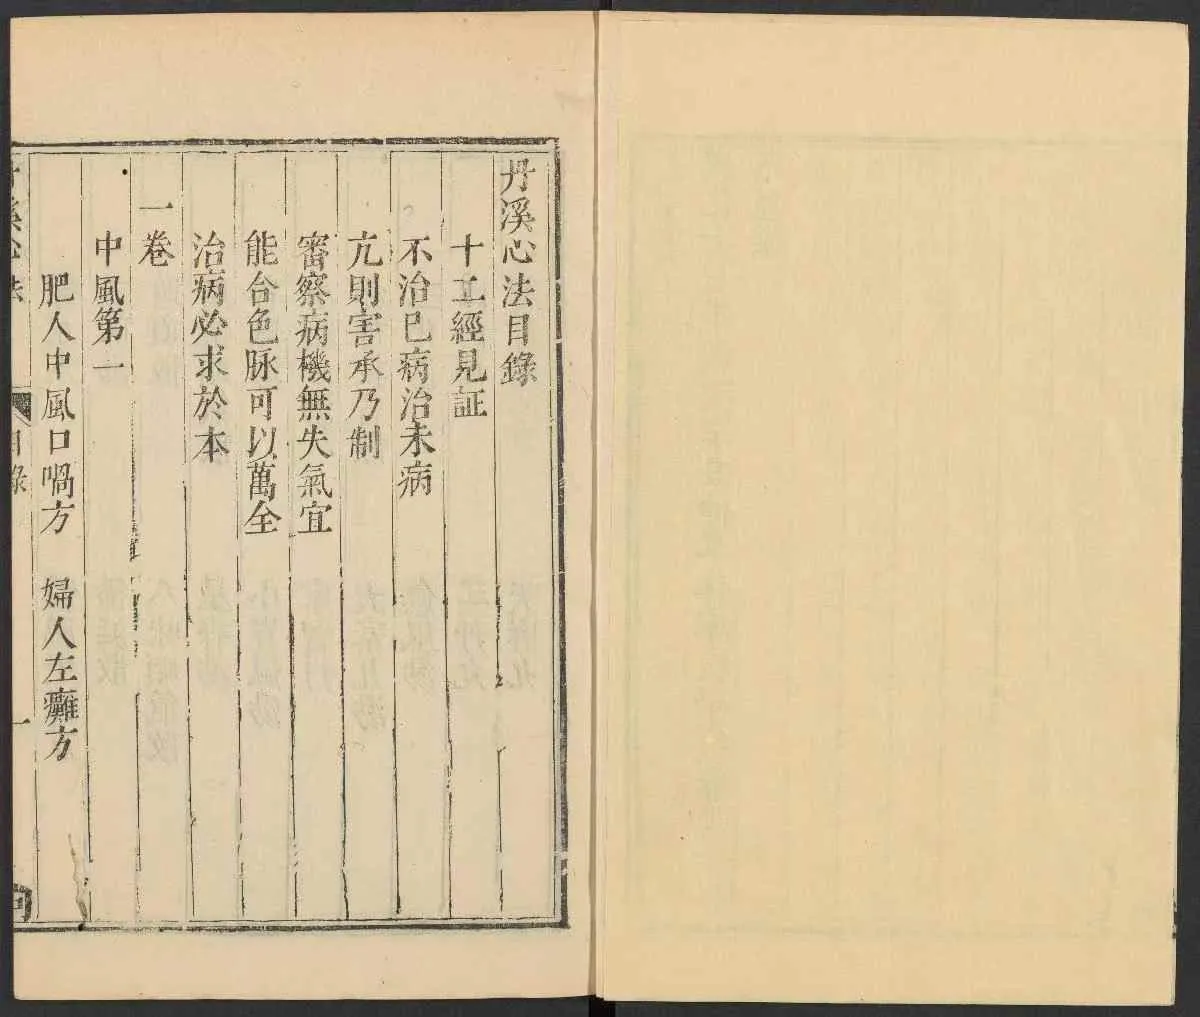 丹溪心法目錄
十工經見証
不治已病治未病
亢則害承乃制
審察病機無失氣宜
能合色脉可以萬全
治病必求於本
一卷
中風第一
肥人中風口喎方 婦人左癱方
目錄 一